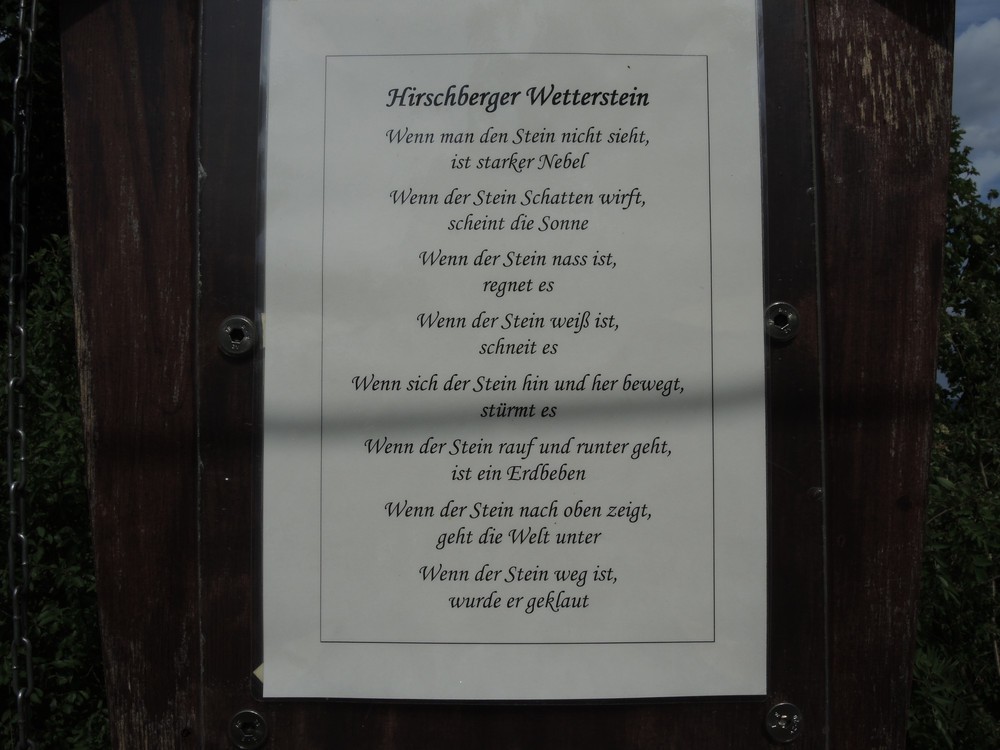 Hirschberger Wetterstein
Wenn man den Stein nicht sieht,
ist starker Nebel
Wenn der Stein Schatten wirft,
scheint die Sonne
Wenn der Stein nass ist,
regnet es
Wenn der Stein weiß ist,
schneit es
Wenn sich der Stein hin und her bewegt,
stürmt es
Wenn der Stein rauf und runter geht,
ist ein Erdbeben
Wenn der Stein nach oben zeigt,
geht die Welt unter
Wenn der Stein weg ist,
wurde er geklaut